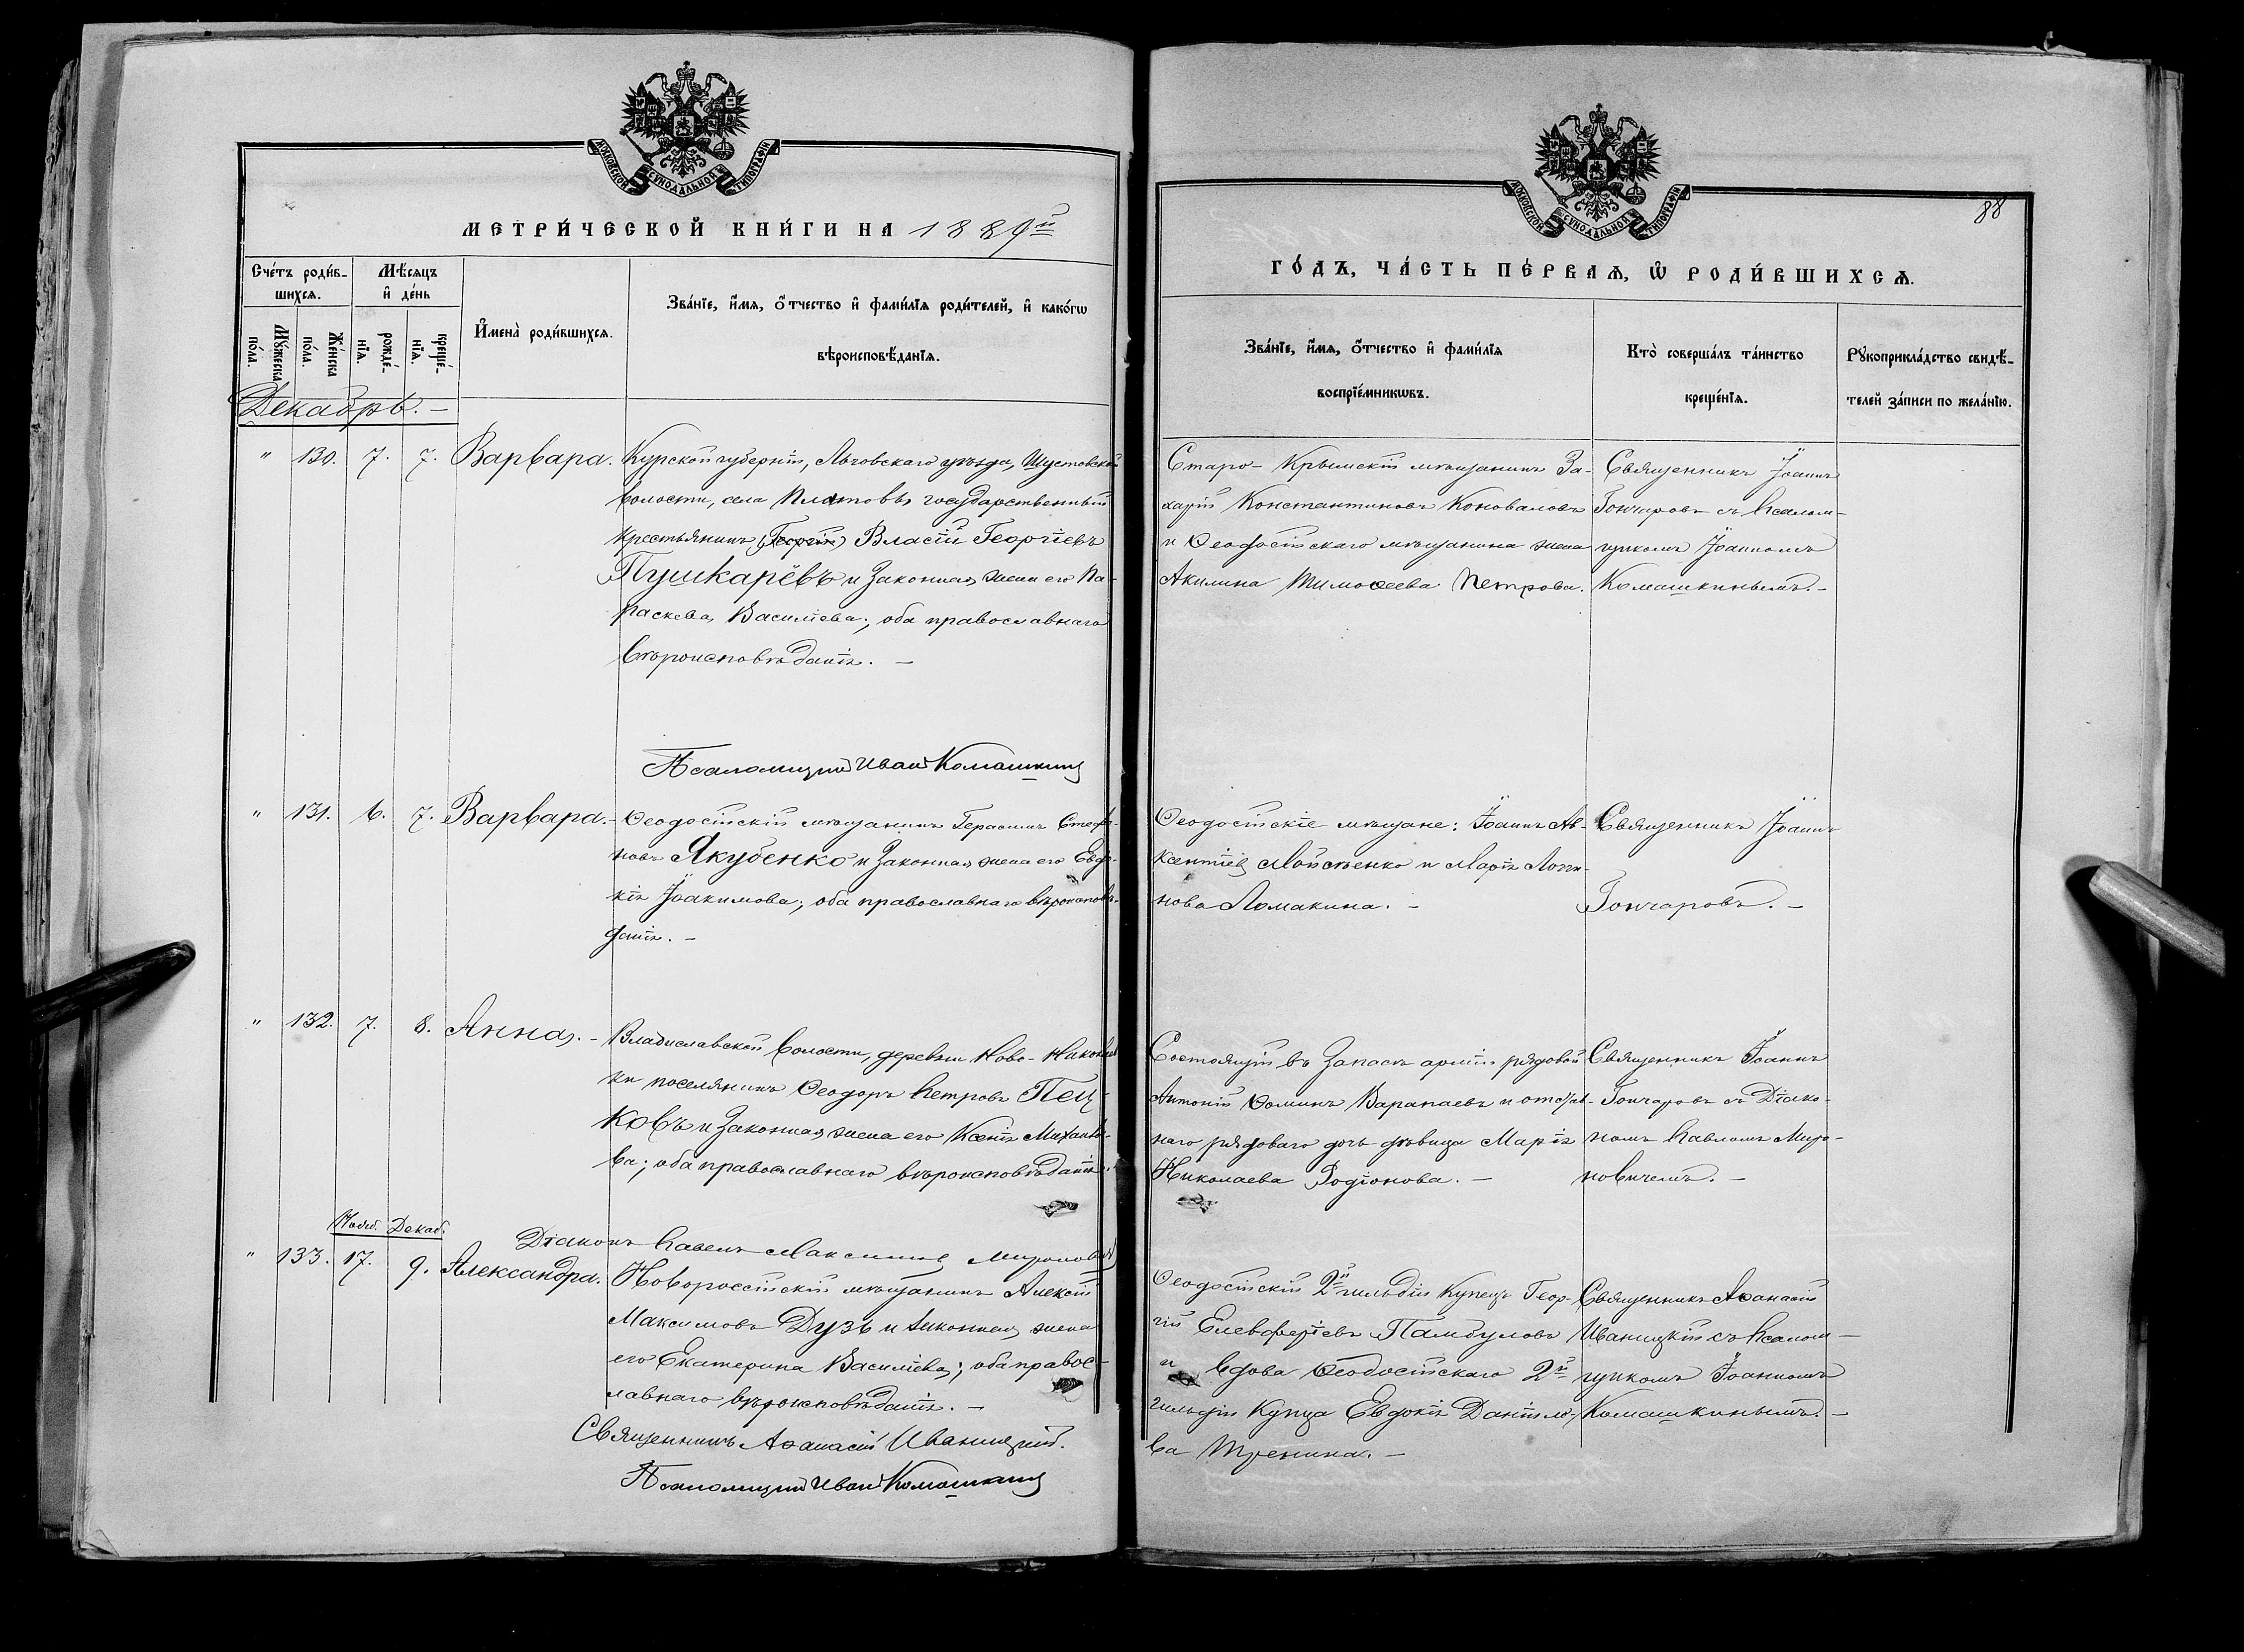 МОСКОВСКОЙ СУНОДАЛЬНОЙ ТИПОГРАФІИ
МЕТРИ́ЧЕСКОЙ КНИ́ГИ НА 1889й
Сче́тъ роди́в-
шихсѧ.
Мѣ́сѧцъ
и҆ де́нь
Мꙋ́жеска
по́ла.
Же́нска
по́ла.
рожде́-
нїѧ.
креще́-
нїѧ.
И҆мена̀ роди́вшихсѧ.
Зва́нїе, и҆́мѧ, о҆́тчество и҆ фами́лїѧ роди́телей, и҆ како́гѡ
вѣроисповѣ́данїѧ.
Декабрь. –
" 130. 7. 7. Варвара.
Курской губерніи, Льговскаго уѣзда, Шустовской
волости, села Платовъ государственный
крестьянинъ (Георгій) Власій Георгіевъ
Пушкарёвъ и законная жена его Па-
раскева Василіева; оба православнаго
вѣроисповѣданія. –
Псаломщикъ Иванъ Комашкинъ
" 131. 6. 7. Варвара. –
Ѳеодосійскій мѣщанинъ Герасимъ Стефа-
новъ Якубенко и законная жена его Евдо-
кія Іоакимова; оба православнаго вѣроисповѣ-
данія. –
" 132. 7. 8. Анна. –
Владиславской волости, деревни Ново-Николаев
ки поселянинъ Ѳеодоръ Петровъ Пец-
ковъ и законная жена его Ксенія Михаило-
ва; оба православнаго вѣроисповѣданія.
Діаконъ Павелъ Максимовъ Мироновичъ
Нояб. Декаб.
" 133. 17. 9. Александра.
Новороссійскій мѣщанинъ Алексій
Максимовъ Дузь и законная жена
его Екатерина Василіева; оба правос-
лавнаго вѣроисповѣданія. –
Священникъ Аѳанасій Иваницкій.
Псаломщикъ Иванъ Комашкинъ
МОСКОВСКОЙ СУНОДАЛЬНОЙ ТИПОГРАФІИ
88
ГО́ДЪ, ЧА́СТЬ ПЕ́РВАѦ, Ѡ҆ РОДИ́ВШИХСѦ.
Зва́нїе, и҆́мѧ, о҆́тчество и҆ фами́лїѧ
воспрїе́мникѡвъ.
Кто̀ соверша́лъ та́инство
креще́нїѧ.
Рꙋкоприкла́дство свидѣ́-
телей за́писи по жела́нїю.
Старо-Крымскій мѣщанинъ За-
харій Константиновъ Коноваловъ
и Ѳеодосійскаго мѣщанина жена
Акилина Тимоѳеева Петрова.
Священникъ Іоаннъ
Гончаровъ съ псалом-
щикомъ Іоанномъ
Комашкинымъ. –
Ѳеодосійскіе мѣщане: Іоаннъ Ав-
ксентіевъ Мойсѣенко и Марія Логи-
нова Ломакина. –
Священникъ Іоаннъ
Гончаровъ. –
Состоящій въ запасѣ арміи рядовой
Антоній Ѳоминъ Варапаевъ и отстав-
наго рядоваго дочь дѣвица Марія
Николаева Родіонова. –
Священникъ Іоаннъ
Гончаровъ съ Діако-
номъ Павломъ Миро-
новичемъ. –
Ѳеодосійскій 2й гильдіи купецъ Геор-
гій Елевферіевъ Памбуловъ
и вдова Ѳеодосійскаго 2й
гильдіи купца Евдокія Даніило-
ва Тренина. –
Священникъ Аѳанасій
Иваницкій съ псалом-
щикомъ Іоанномъ
Комашкинымъ. –